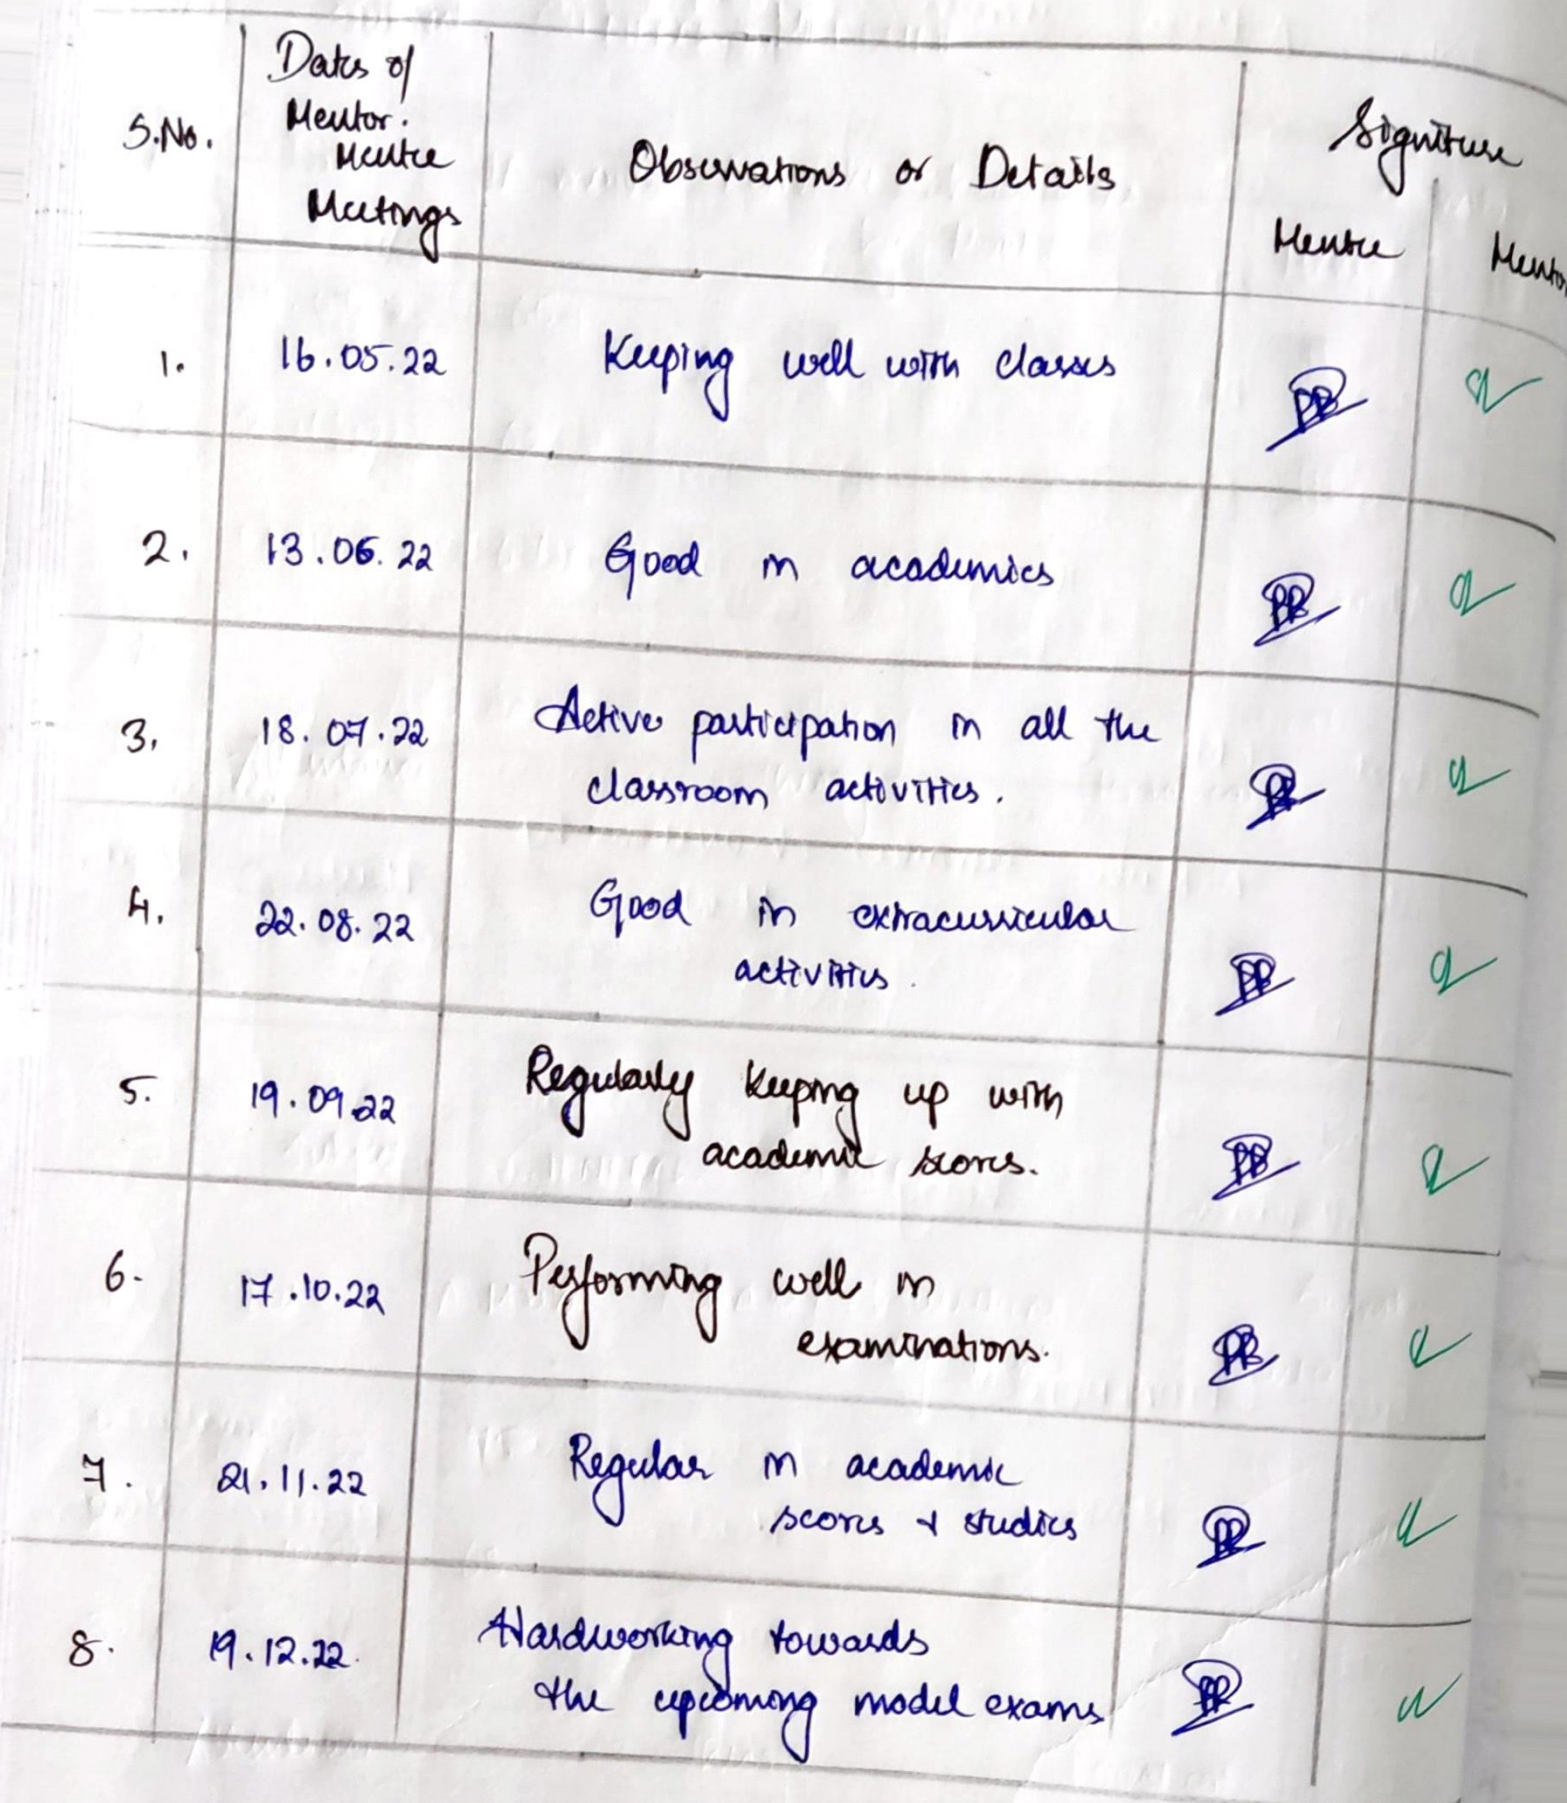 S.No.
Dates of
Mentor.
Mentee
Meetings
Observations or Details
Signiture
Mentee
Mento
1.
16.05.22
Keeping well with classes
2.
13.06.22
Good in academics
3.
18.07.22
Active participation in all the
classroom activities.
4.
22.08.22
Good in extracurricular
activities.
5.
19.09.22
Regularly keeping up with
academic scores.
6.
17.10.22
Performing well in
examinations.
7.
21.11.22
Regular in academic
scores & studies
8.
19.12.22.
Hardworking towards
the upcoming model exams